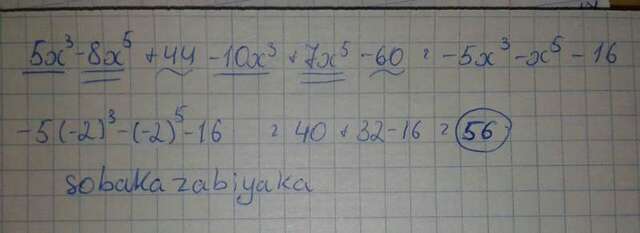 5x³ - 8x⁵ + 44 - 10x³ + 7x⁵ - 60 = -5x³ - x⁵ - 16
-5(-2)³ - (-2)⁵ - 16 = 40 + 32 - 16 = 56
sobaka zabiyaka